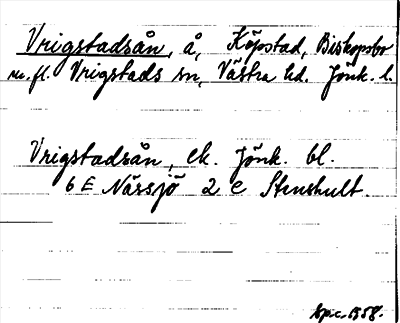 Vrigstadsån, å, Köpstad, Biskopsbo
m.fl. Vrigstads sn, Västra hd. Jönk. l.
Vrigstadsån, ek. Jönk. bl.
6 E Nässjö 2 c Stenshult.
1958.